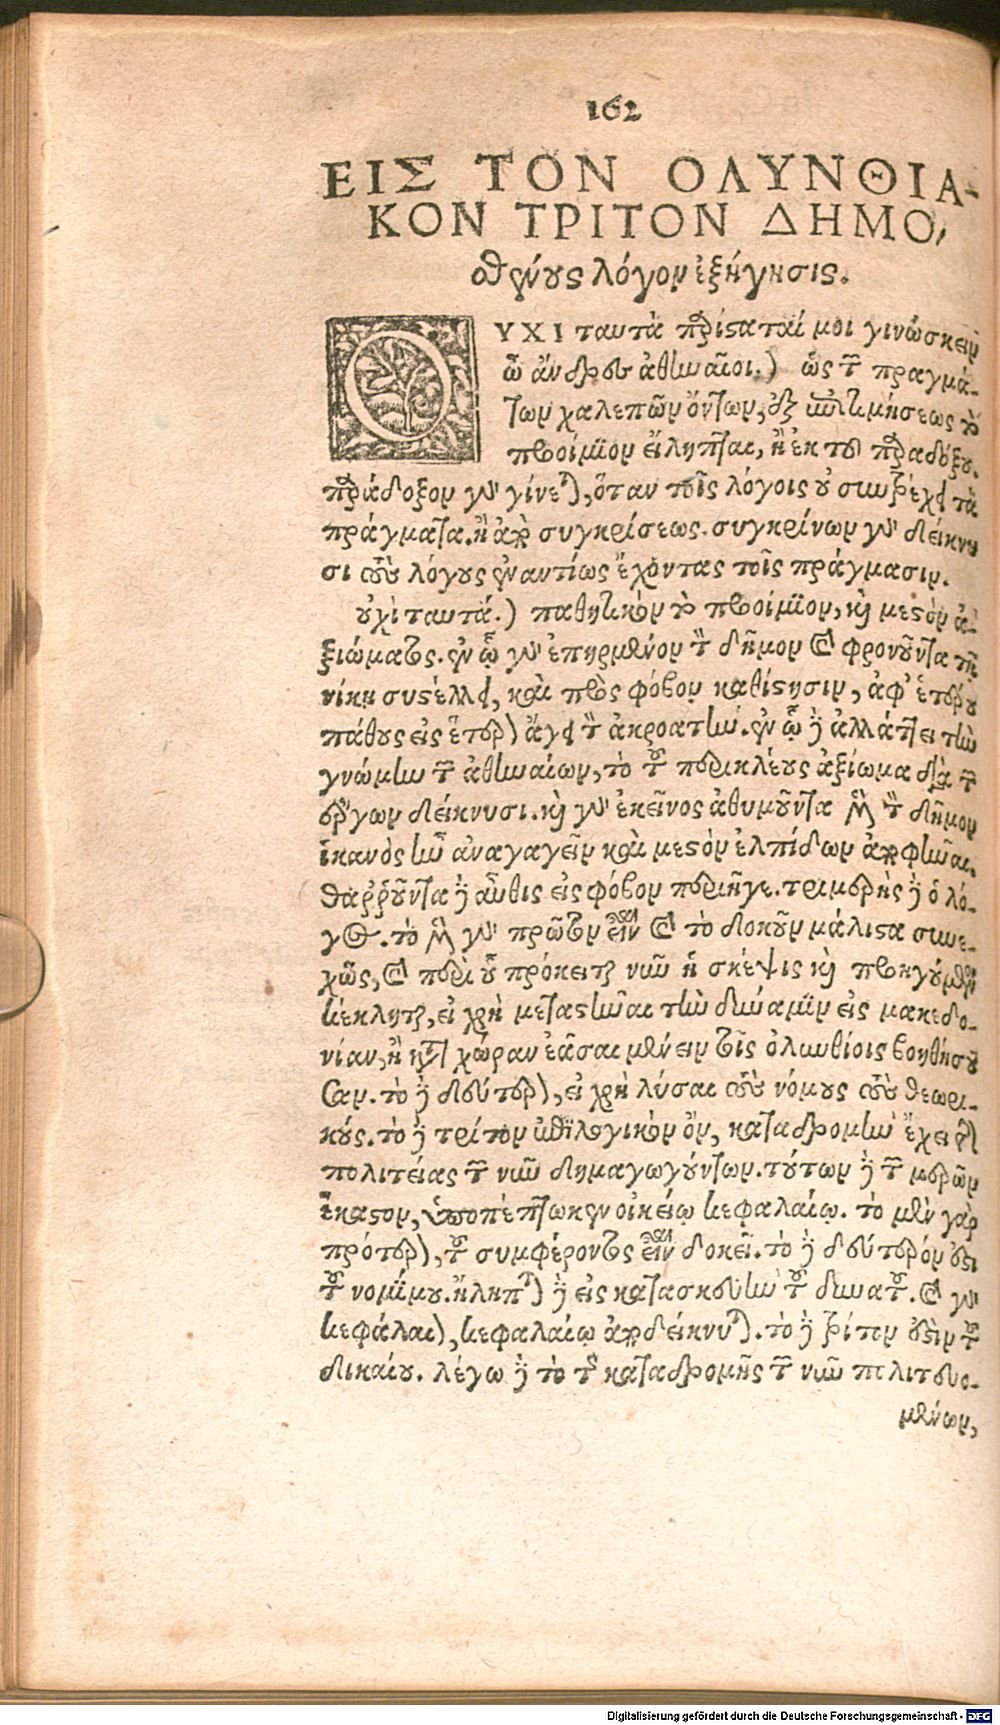 162
ΕΙΣ ΤΟΝ ΟΛΥΝΘΙΑ-
ΚΟΝ ΤΡΙΤΟΝ ΔΗΜΟ,
σθένους λόγον ἐξήγησις.
ΟΥΧΙ ταυτὰ παρίσαταί μοι γινώσκειν
ὦ ἄνδρες ἀθηναῖοι.) ὡς τῶν πραγμά-
των χαλεπῶν ὄντων, ἐξ ἐπιτιμήσεως τὸ
προοίμιον εἴληπται, ἢ ἐκ τοῦ παραδόξου.
παράδοξον γὰρ γίνεται, ὅταν τοῖς λόγοις οὐ συντρέχῃ τὰ
πράγματα. ἢ ἀπὸ συγκρίσεως. συγκρίνων γὰρ δείκνυ
σι τοὺς λόγους ἐναντίως ἔχοντας τοῖς πράγμασιν.
οὐχὶ ταυτά.) παθητικὸν τὸ προοίμιον, καὶ μεστὸν ἀ-
ξιώματος. ἐν ᾧ γὰρ ἐπηρμένον τὸν δῆμον καὶ φρονοῦντα τῇ
νίκῃ συστέλλει, καὶ πρὸς φόβον καθίστησιν, ἀφ' ἑτέρου
πάθους εἰς ἕτερον ἄγει τὸν ἀκροατήν. ἐν ᾧ δὲ ἀλλάττει τὴν
γνώμην τῶν ἀθηναίων, τὸ τοῦ περικλέους ἀξίωμα διὰ τῶν
ἔργων δείκνυσι. καὶ γὰρ ἐκεῖνος ἀθυμοῦντα μὲν τὸν δῆμον
ἱκανὸς ἦν ἀναγαγεῖν καὶ μεστὸν ἐλπίδων ἀποφῆναι.
θαῤῥοῦντα δὲ αὖθις εἰς φόβον περιῆγε. τριμερὴς δὲ ὁ λό-
γος. τὸ μὲν γὰρ πρῶτον ἐστὶν καὶ τὸ δοκοῦν μάλιστα συνε-
χῶς, καὶ περὶ οὗ πρόκειται νῦν ἡ σκέψις καὶ προηγουμένη
κέκληται, εἰ χρὴ μεταστῆναι τὴν δύναμιν εἰς μακεδο-
νίαν, ἢ κατὰ χώραν ἐᾶσαι μένειν τοῖς ὀλυνθίοις βοηθήσου
σαν. τὸ δὲ δεύτερον, εἰ χρὴ λύσαι τοὺς νόμους τοὺς θεωρι-
κούς. τὸ δὲ τρίτον ἐπιλογικὸν ὂν, καταδρομὴν ἔχει τῆς
πολιτείας τῶν νῦν δημαγωγούντων. τούτων δὲ τῶν μερῶν
ἕκαστον, ὑποπέπτωκεν οἰκείῳ κεφαλαίῳ. τὸ μὲν γὰρ
πρότερον, τοῦ συμφέροντος εἶναι δοκεῖ. τὸ δὲ δεύτερόν ἐστι
τοῦ νομίμου. ἤληπται δὲ εἰς κατασκευὴν τοῦ δυνατοῦ. καὶ γὰρ
κεφάλαιον, κεφαλαίῳ ἀποδείκνυται. τὸ δὲ τρίτον ἐστὶν τοῦ
δικαίου. λέγω δὲ τὸ τῆς καταδρομῆς τῶν νῦν πολιτευο-
μένων,
Digitalisierung gefördert durch die Deutsche Forschungsgemeinschaft - DFG